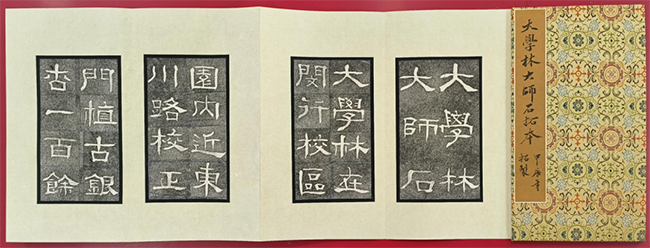 大學林大師石拓本
甲辰年
拓製
大學林
大師石
大學林在
閔行校區
園内近東
川路校正
門植古銀
杏一百餘